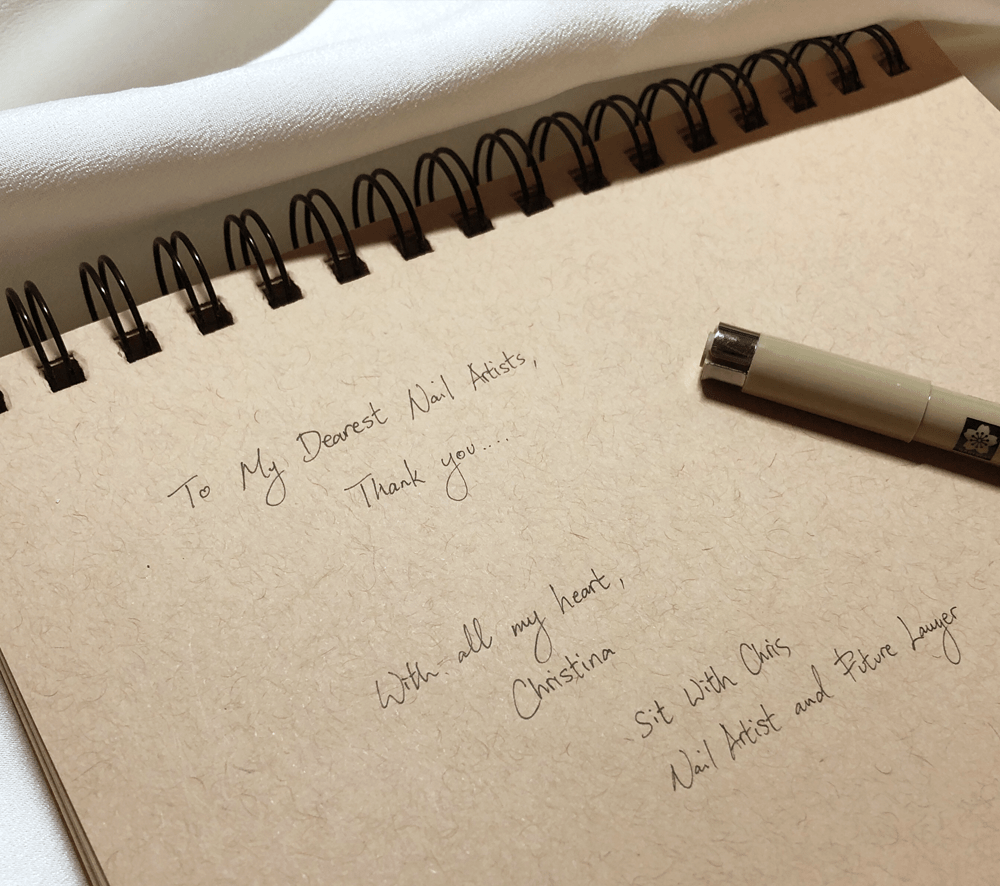 To My Dearest Nail Artists,
Thank you....
With all my heart,
Christina
Sit With Chris
Nail Artist and Future Lawyer